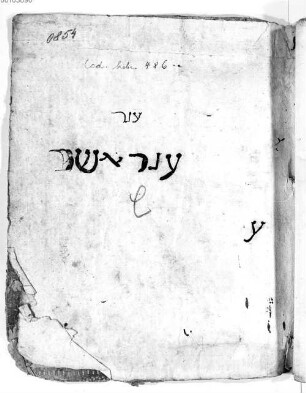 0854
Cod. hebr. 486
ענר
ענר אשר
ע